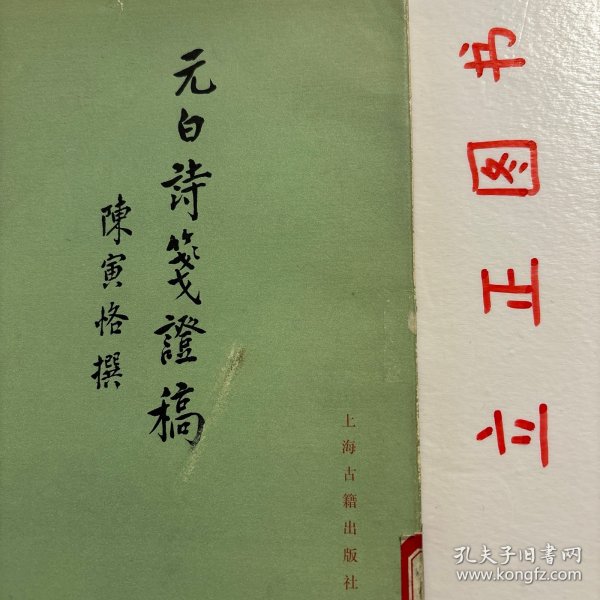 元白詩箋證稿
陳寅恪撰
上海古籍出版社
立正图书
孔夫子旧书网
www.kongfz.com